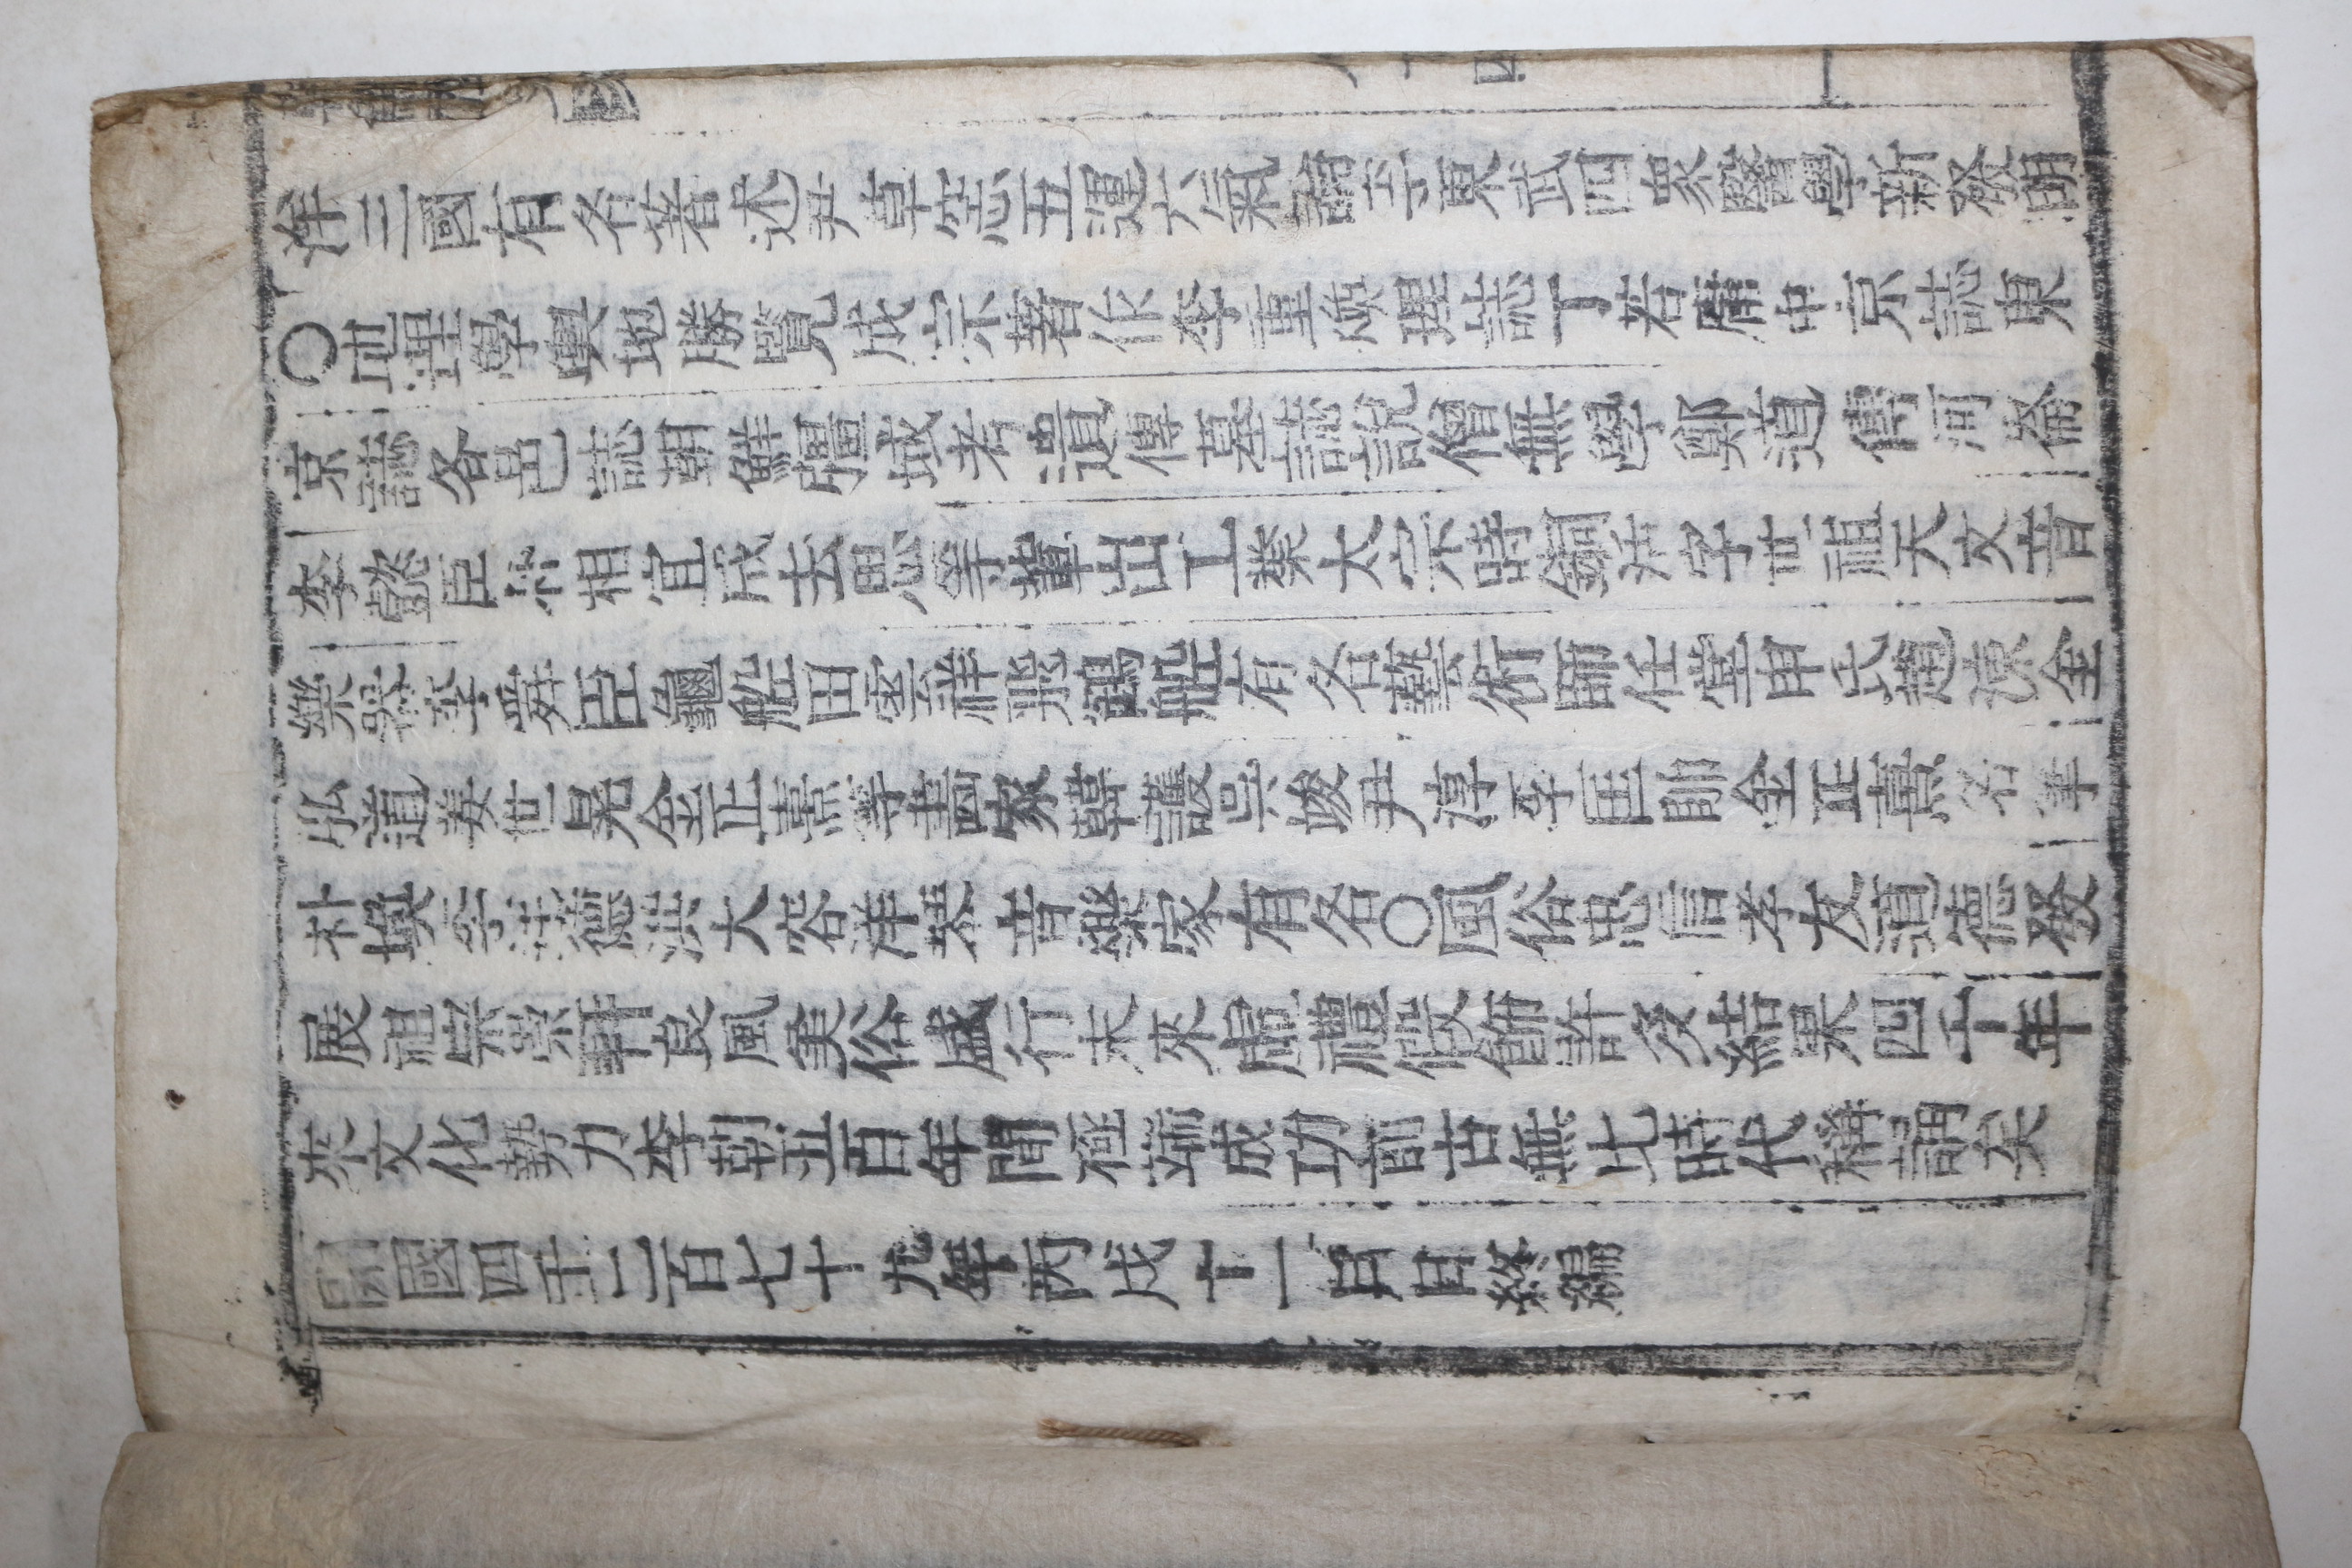 洋三國有名著述尹草窓五運六氣論李東武四象醫學新發明
○地理學輿地勝覽成宗著作李重煥理誌丁若庸中京誌東
京誌各邑誌朝鮮疆域考遺傳墓誌說僧無學鄭道傳河崙
李懿臣朴相宜成去思等輩出工業太宗時銅活字世祖天文音
樂器李舜臣龜船田雲祥飛鶴船有名藝術師任堂申氏趙涑金
弘道姜世晃金正熹等畵家韓護吳竣尹淳李匡師金正熹名筆
朴堧李德洪大容洋琴音樂家有名○風俗忠信孝友道德發
展祖宗崇軒良風美俗盛行末來虛禮假飾許多結果四千年
來文化勢力李朝五百年間極端成功前古無比時代稱謂矣
開國四千二百七十九年丙戌十一月日終編